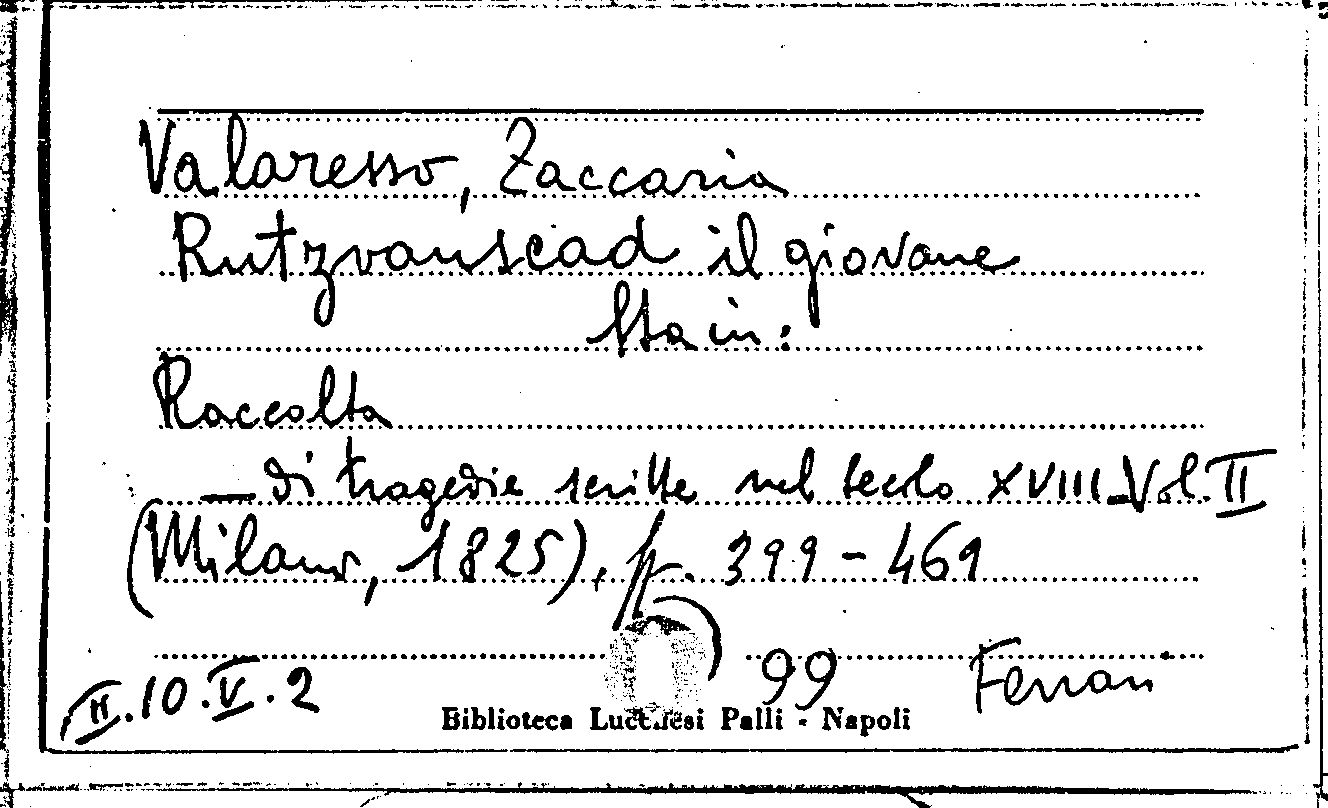 Valaresso, Zaccaria
Rutzvanscad il giovane
Sta in:
Raccolta
— di tragedie scritte nel secolo XVIII_Vol. II
(Milano, 1825), pp. 399-469
II.10.V.2 99 Ferrari
Biblioteca Lucchesi Palli - Napoli